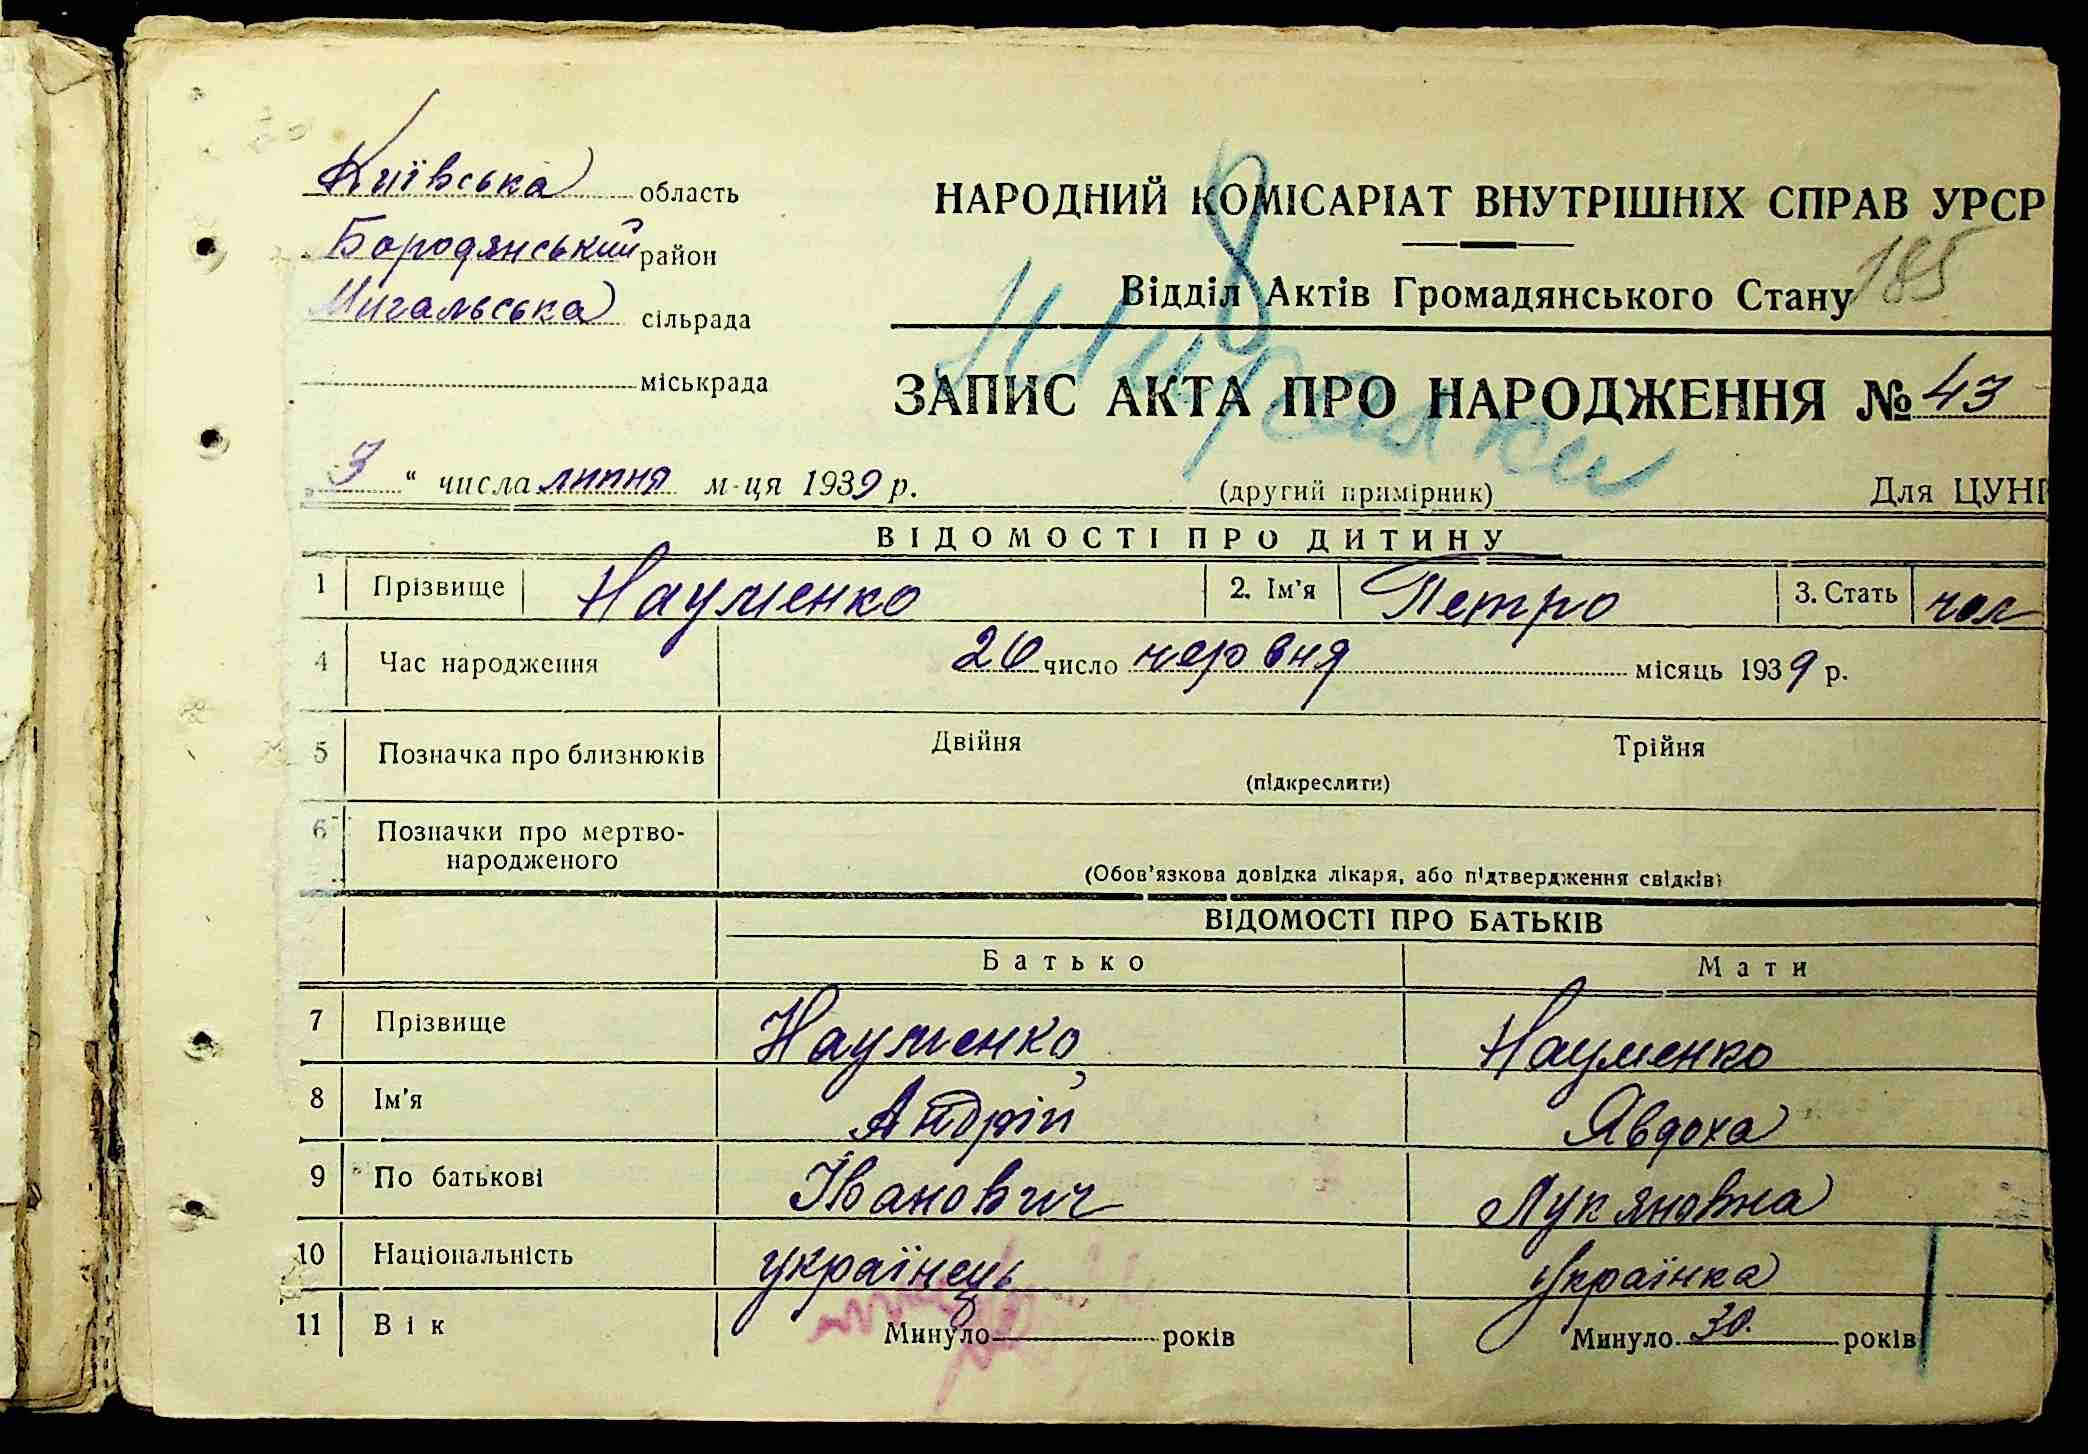 Київська область
Бородянський район
Мигальська сільрада
міськрада
НАРОДНИЙ КОМІСАРІАТ ВНУТРІШНІХ СПРАВ УРСР
185
Відділ Актів Громадянського Стану
8
ЗАПИС АКТА ПРО НАРОДЖЕННЯ № 43
„3“ числа липня м-ця 1939 р.
(другий примірник)
Для ЦУНГ
ВІДОМОСТІ ПРО ДИТИНУ
1 Прізвище Науменко 2. Ім'я Петро 3. Стать чол
4 Час народження 26 число червня місяць 1939 р.
5 Позначка про близнюків Двійня Трійня
(підкреслити)
6 Позначки про мертво-
народженого
(Обов'язкова довідка лікаря, або підтвердження свідків)
ВІДОМОСТІ ПРО БАТЬКІВ
Батько Мати
7 Прізвище Науменко Науменко
8 Ім'я Андрій Явдоха
9 По батькові Іванович Лукяновна
10 Національність українець Українка
11 Вік Минуло років Минуло 30. років